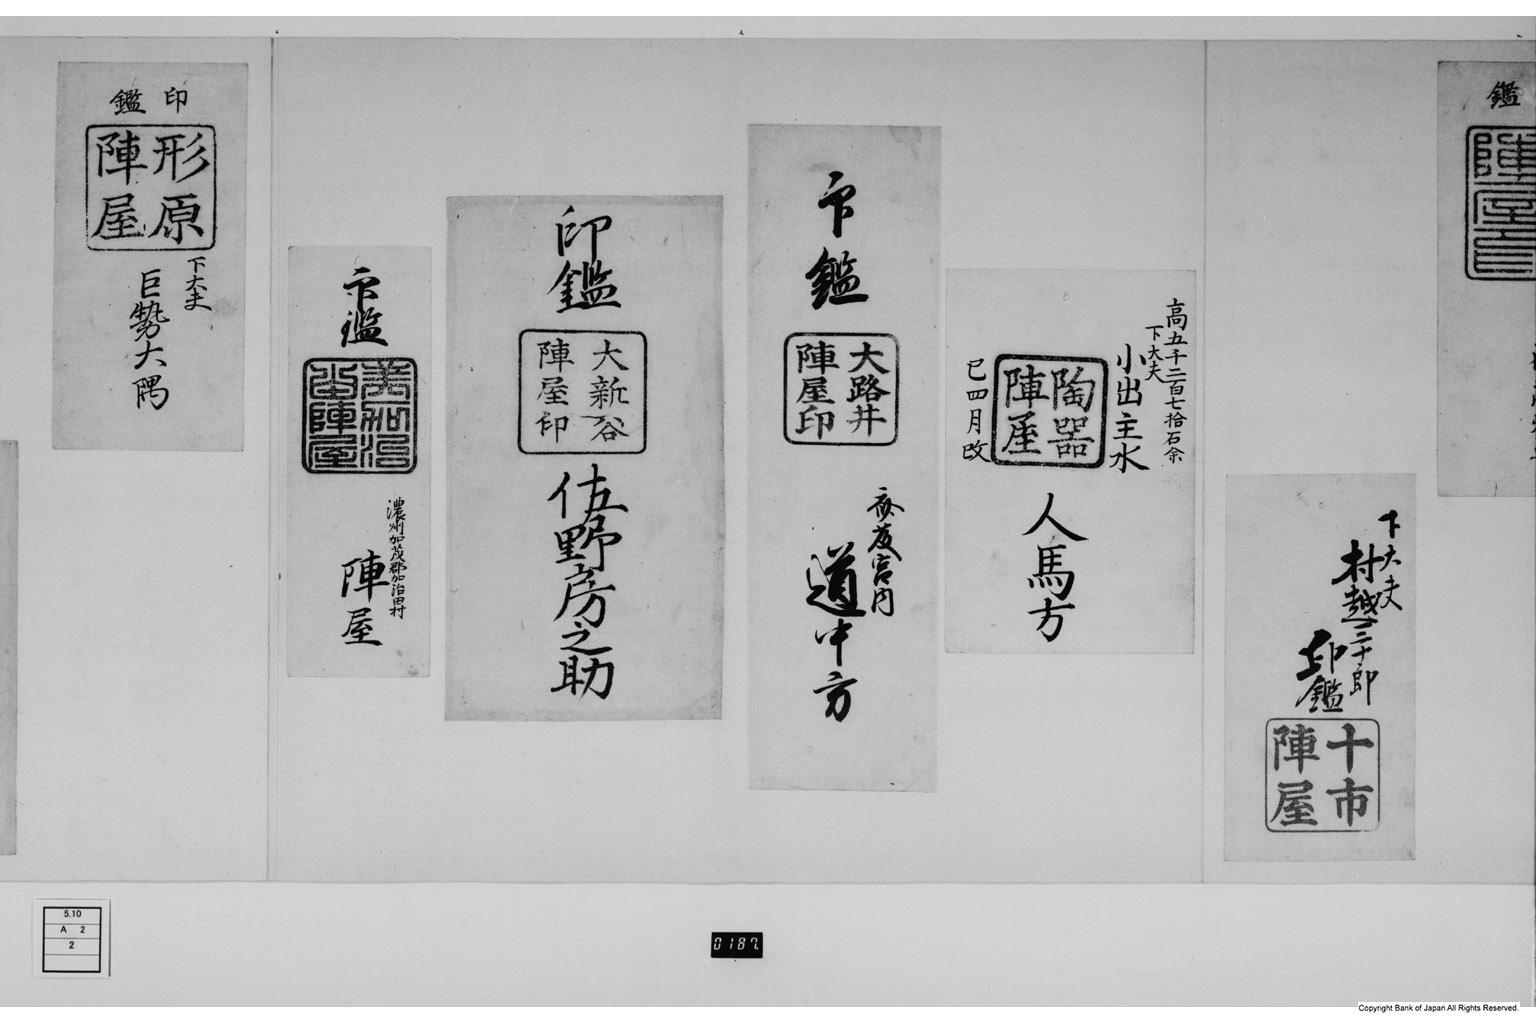 鑑
下大夫
村越三十郎
印鑑
十市
陣屋
高五千二百七拾石余
下大夫
小出主水
陶器
陣屋
巳四月改
人馬方
印鑑
大路井
陣屋印
道中方
印鑑
大新谷
陣屋印
佐野房之助
印鑑
美加治
田陣屋
濃州加茂郡加治田村
陣屋
印鑑
形原
陣屋
下大夫
巨勢大隅
5.10
A 2
2
0187
Copyright Bank of Japan All Rights Reserved.